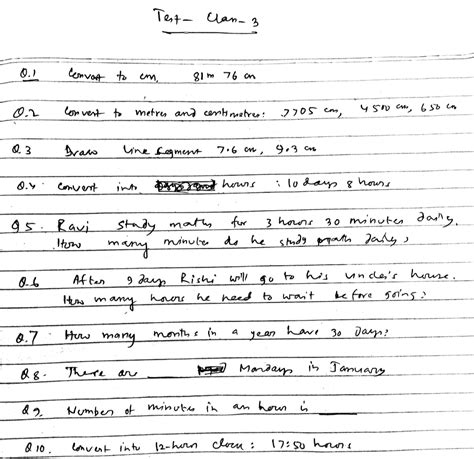 Test - Class - 3
Q.1 Convert to cm, 81 m 76 cm
Q.2 Convert to metres and centimetres: 7705 cm, 4500 cm, 650 cm
Q.3 Draw line segment 7.6 cm, 9.3 cm
Q.4 Convert into hours : 10 days 8 hours
Q5. Ravi study maths for 3 hours 30 minutes daily.
How many minutes do he study math daily?
Q.6 After 9 days Rishi will go to his uncle's house.
How many hours he need to wait before going?
Q.7 How many months in a year have 30 Days?
Q8. There are ______ Mondays in January
Q9. Number of minutes in an hour is ______
Q10. Convert into 12-hour clock : 17:50 hours